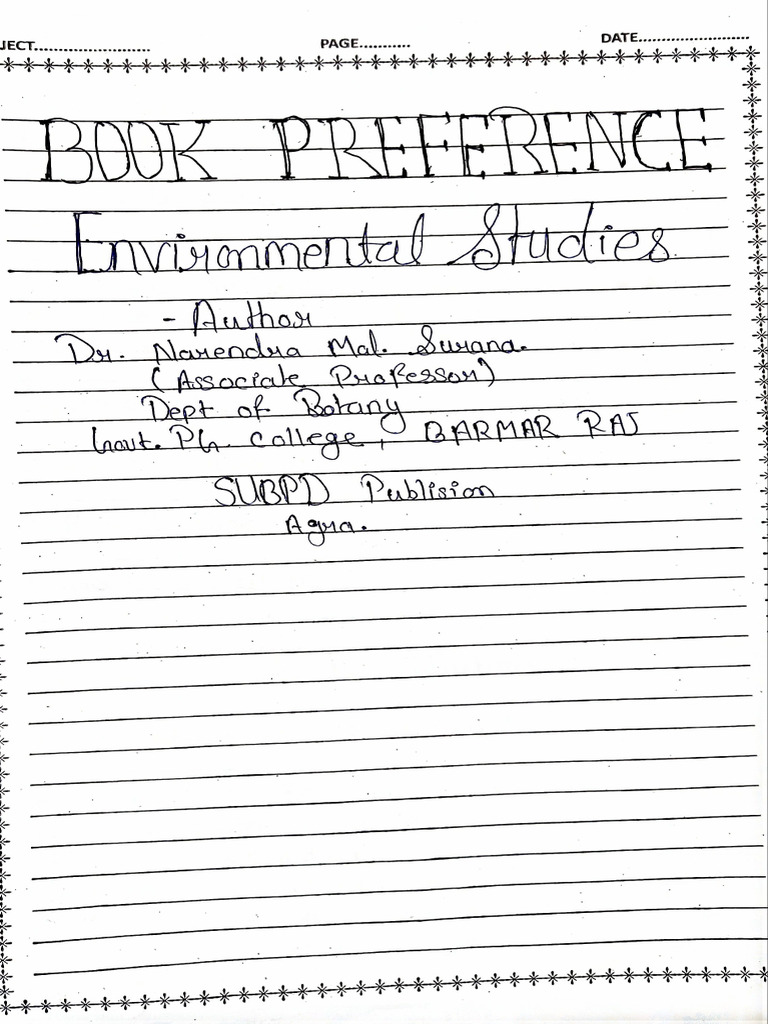 JECT........................ PAGE........... DATE........................
BOOK PREFERENCE
Environmental Studies
- Author
Dr. Narendra Mal. Surana.
(Associate Professor)
Dept of Botany
Govt. PG College, BARMAR RAJ
SUBPD Publision
Agra.